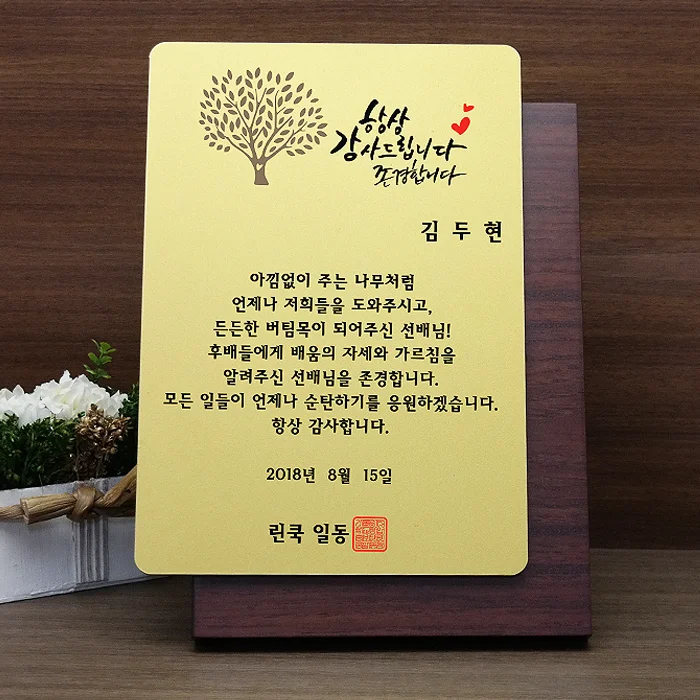 항상
감사드립니다
존경합니다
김 두 현
아낌없이 주는 나무처럼
언제나 저희들을 도와주시고,
든든한 버팀목이 되어주신 선배님!
후배들에게 배움의 자세와 가르침을
알려주신 선배님을 존경합니다.
모든 일들이 언제나 순탄하기를 응원하겠습니다.
항상 감사합니다.
2018년 8월 15일
린쿡 일동